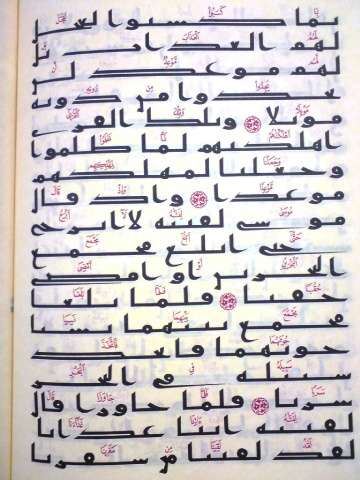 بما كسبوا لعجل
لهم العذاب بل
لهم موعد لن
يجدوا من دونه
موئلا وتلك القرى
اهلكنهم لما ظلموا
وجعلنا لمهلكهم
موعدا واذ قال
موسى لفتيه لا ابرح
حتى ابلغ مجمع
البحرين او امضي
حقبا فلما بلغا
مجمع بينهما نسيا
حوتهما فاتخذ
سبيله في البحر
سربا فلما جاوزا قال
لفتيه اتنا غدانا
لقد لقينا من سفرنا